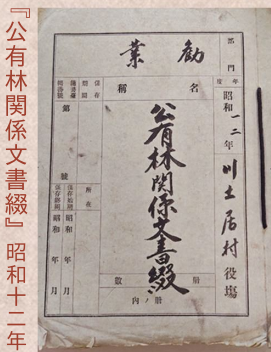 『公有林関係文書綴』昭和十二年
部門
勧業
年度
昭和一二年
川土居村役場
名稱
公有林関係文書綴
保存
種別
第
號
所在
保存始期
昭和 年 月
保存終期
昭和 年 月
冊数
冊ノ内